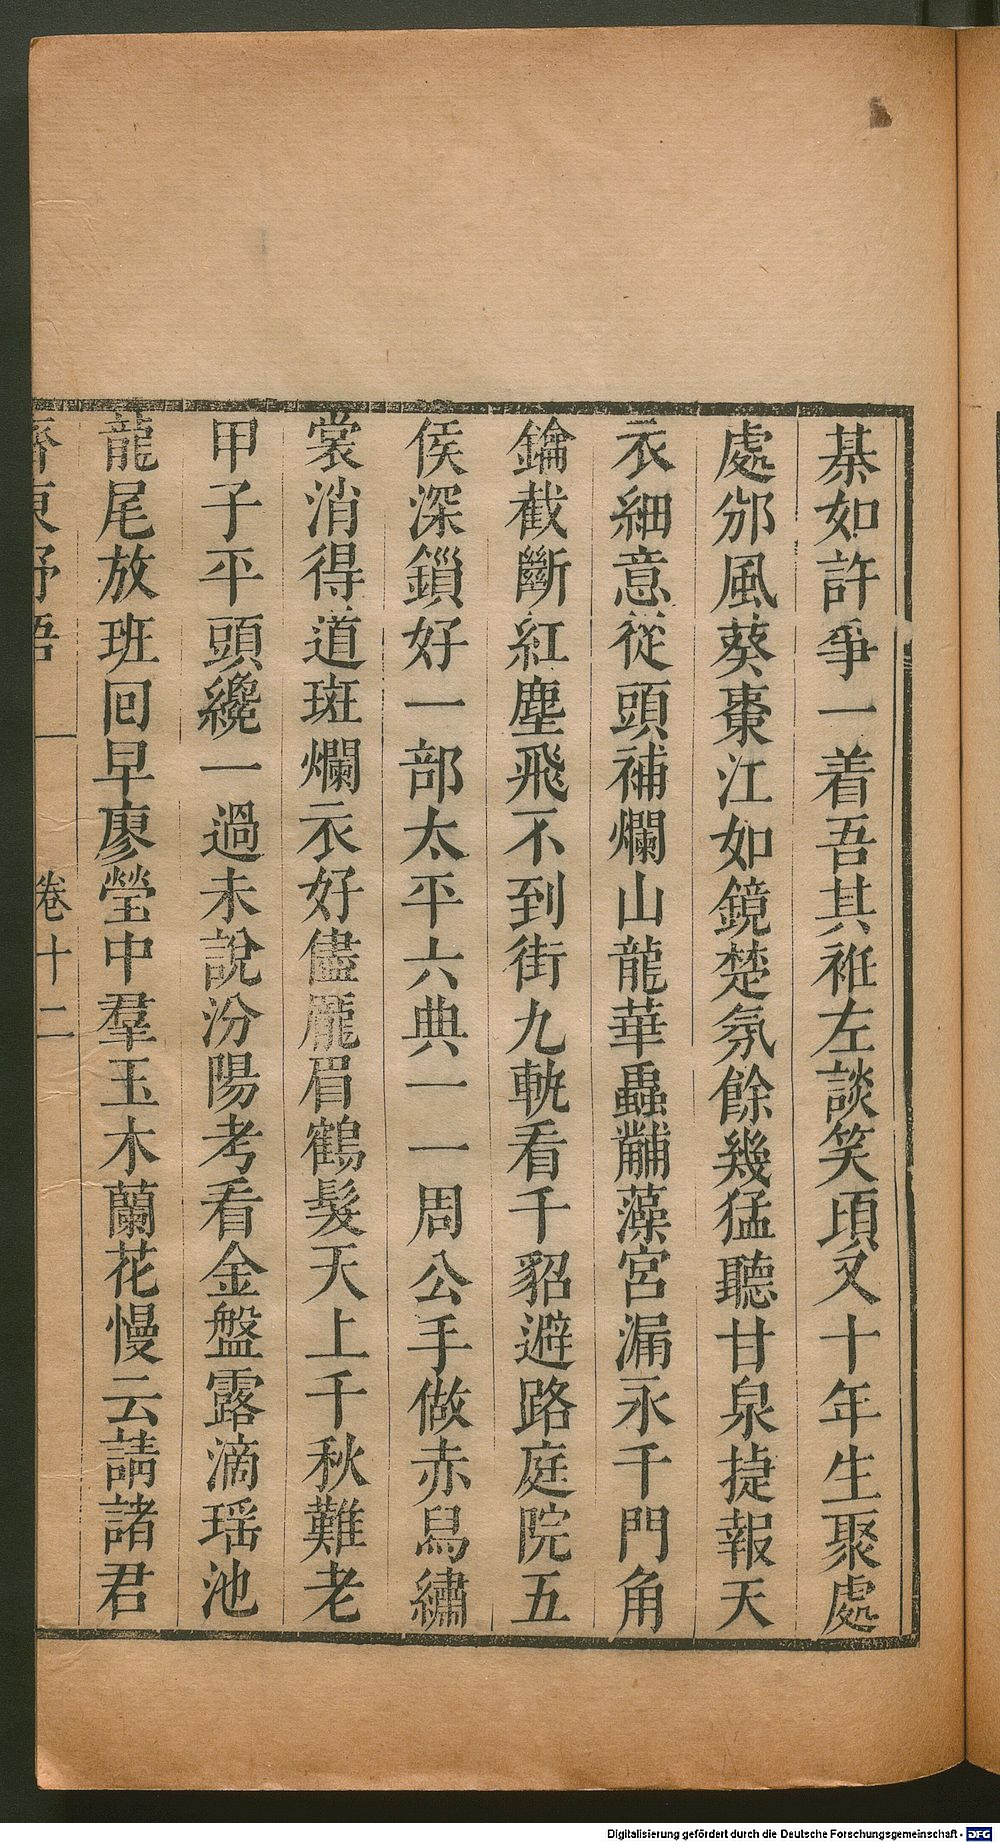 棊如許爭一着吾其袵左談笑頃又十年生聚處
處邠風葵棗江如鏡楚氛餘幾猛聽甘泉捷報天
衣細意從頭補爛山龍華蟲黼藻宮漏永千門角
鑰截斷紅塵飛不到街九軌看千貂避路庭院五
侯深鎖好一部太平六典一一周公手做赤舄繡
裳消得道斑爛衣好儘龎眉鶴髮天上千秋難老
甲子平頭纔一過未說汾陽考看金盤露滴瑶池
龍尾放班回早廖瑩中羣玉木蘭花慢云請諸君
齊東野語 卷十二
Digitalisierung gefördert durch die Deutsche Forschungsgemeinschaft - DFG